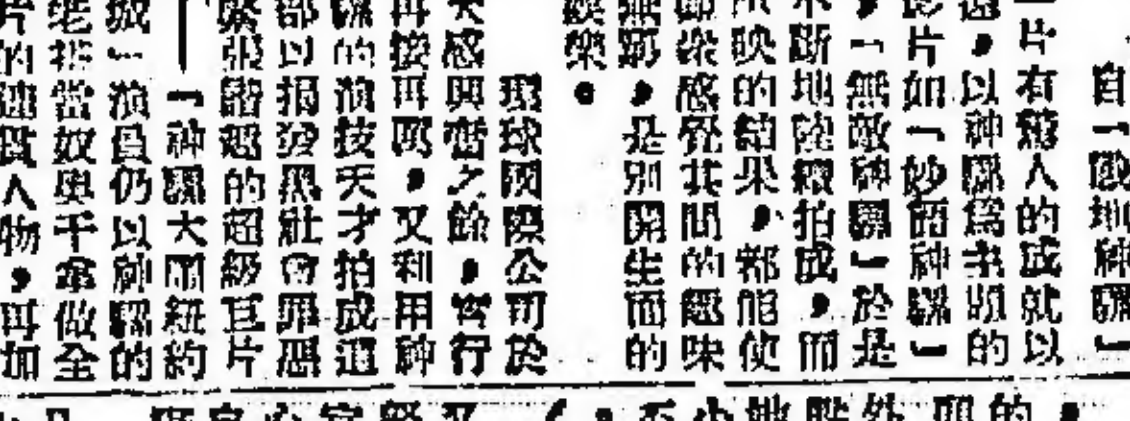 自「戰地神騾」
一片有驚人的成就以
，以神騾爲主題的
影片如「妙語神騾」
，「無敵神騾」於是
不斷地陸續拍成，而
所映的結果，都能使
觀衆感覺其間的趣味
無窮，是別開生面的
娛樂。
環球國際公司於
大感興奮之餘，實行
再接再厲，又利用神
騾的演技天才拍成這
部以揭發黑社會罪惡
緊張諧趣的超級巨片
「神騾大鬧紐約
城」演員仍以神騾的
老搭當奴奧千拿做全
片的連貫人物，再加